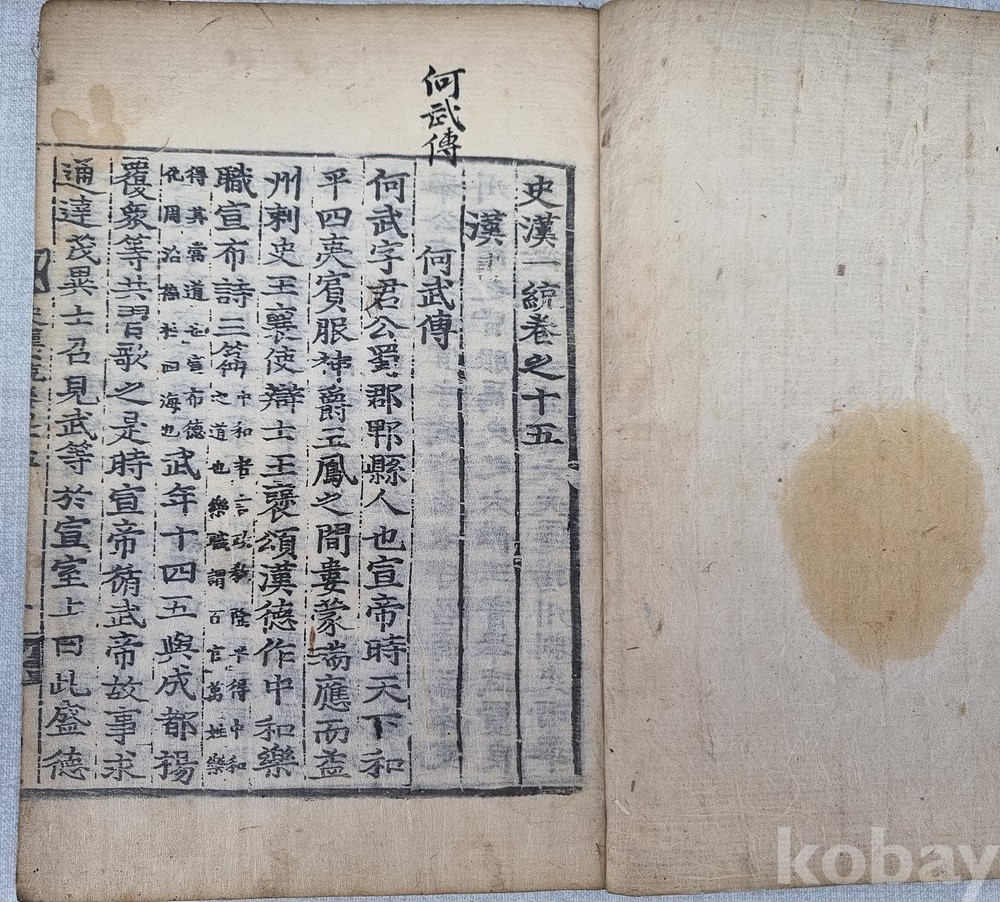 何武傳
史漢一統卷之十五
漢
何武傳
何武字君公蜀郡郫縣人也宣帝時天下和
平四夷賓服神爵五鳳之間婁蒙瑞應而益
州刺史王襄使辯士王襃頌漢德作中和樂
職宣布詩三篇中和者言政敎隆平得中和
之道也樂職謂百官萬姓樂
得其常道也宣布德
化周洽徧於四海也武年十四五與成都楊
覆衆等共習歌之是時宣帝循武帝故事求
通達茂異士召見武等於宣室上曰此盛德
kobay